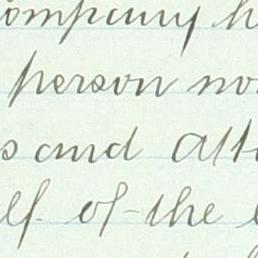 ompany h
person no
s and att
lf of the